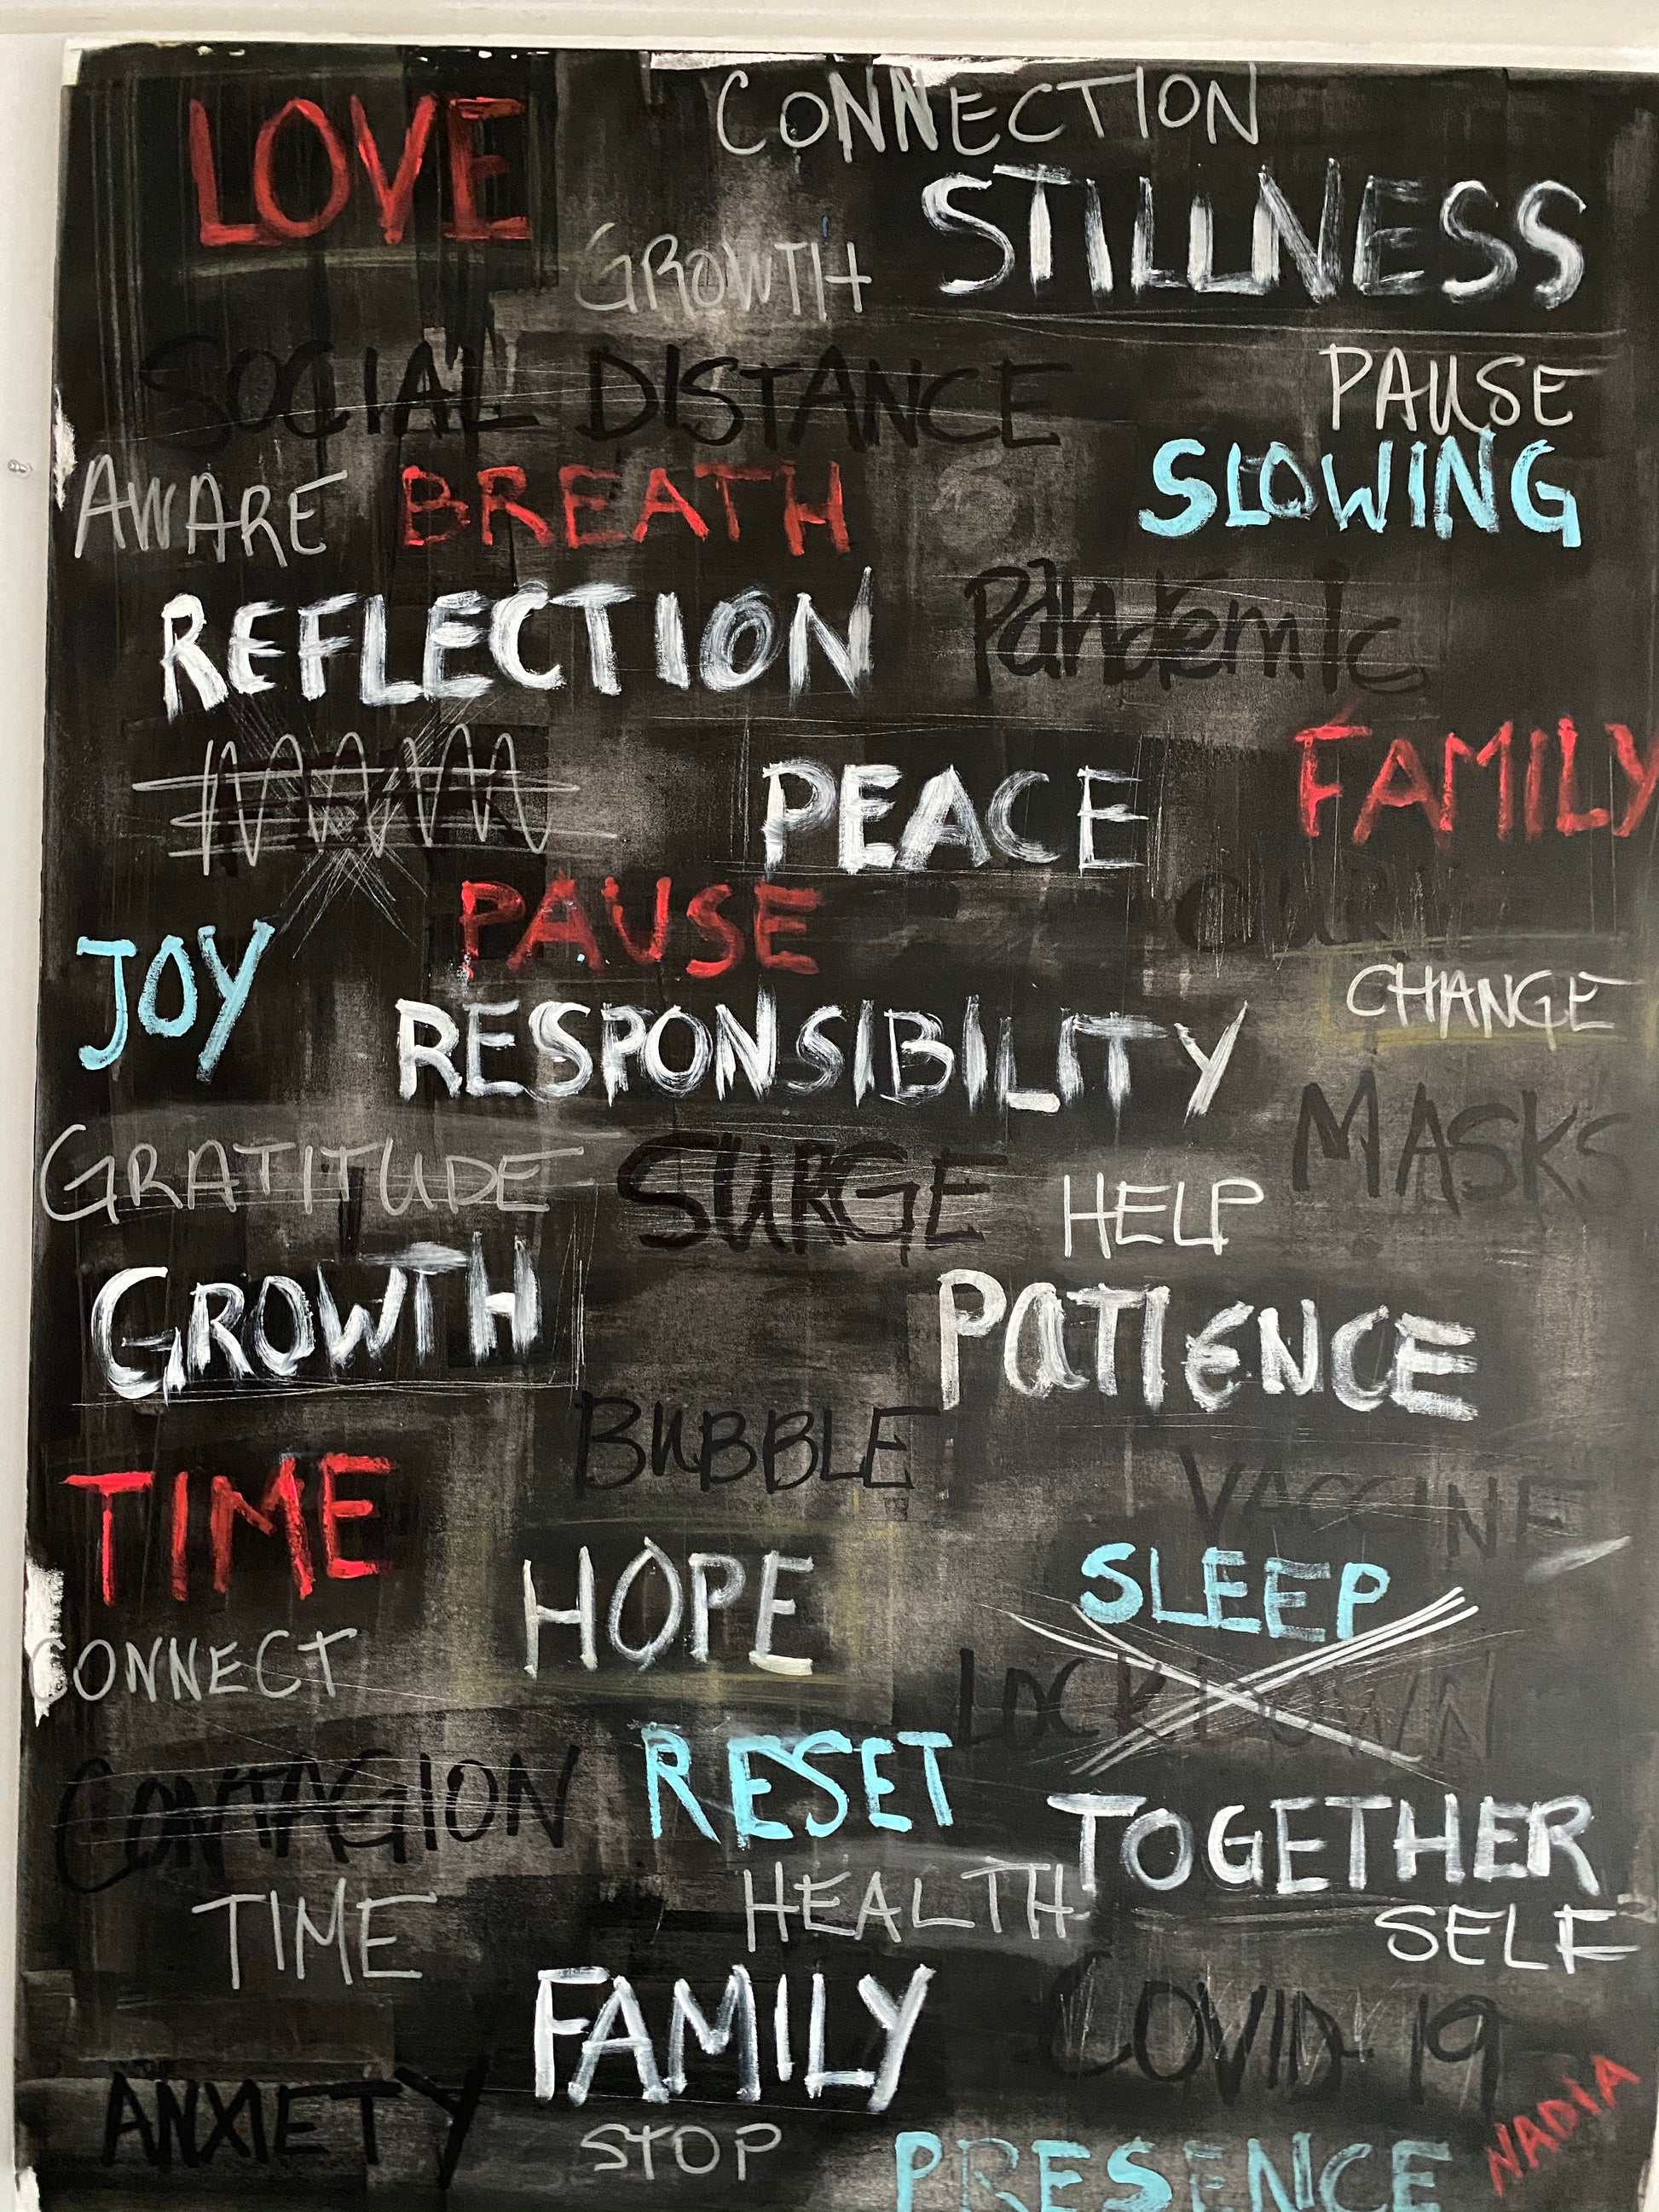 LOVE
CONNECTION
STILLNESS
GROWTH
SOCIAL DISTANCE
PAUSE
AWARE BREATH
SLOWING
REFLECTION
Pandemic
FAMILY
PEACE
PAUSE
JOY
CHANGE
RESPONSIBILITY
MASKS
GRATITUDE
SURGE
HELP
GROWTH
PATIENCE
BUBBLE
VACCINE
TIME
HOPE
SLEEP
CONNECT
LOCKDOWN
CONTAGION
RESET
TOGETHER
TIME
HEALTH
SELF
FAMILY
COVID-19
ANXIETY
STOP
PRESENCE
NADIA